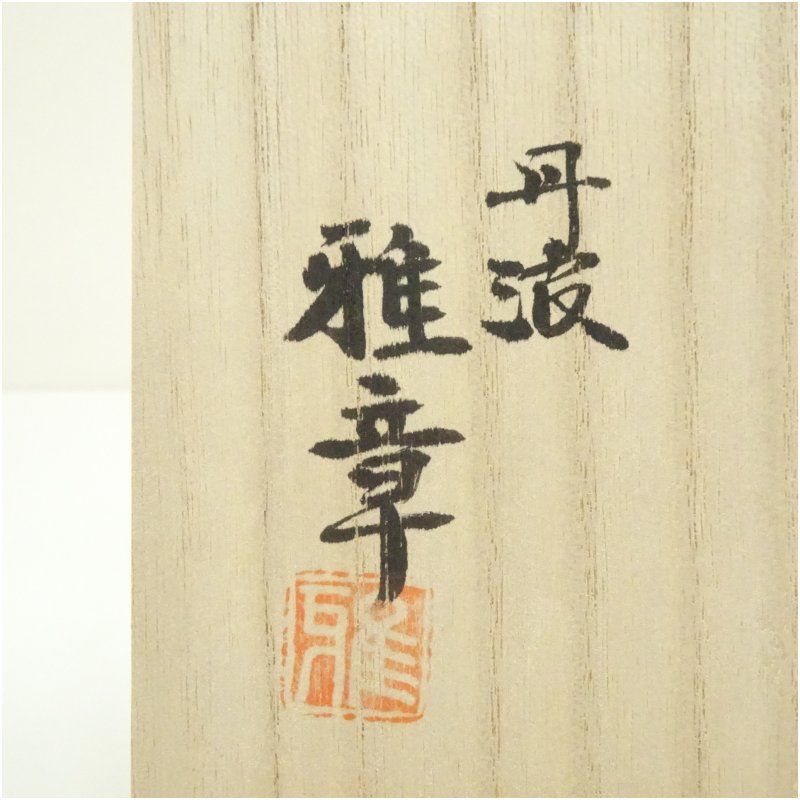 丹波
雅章